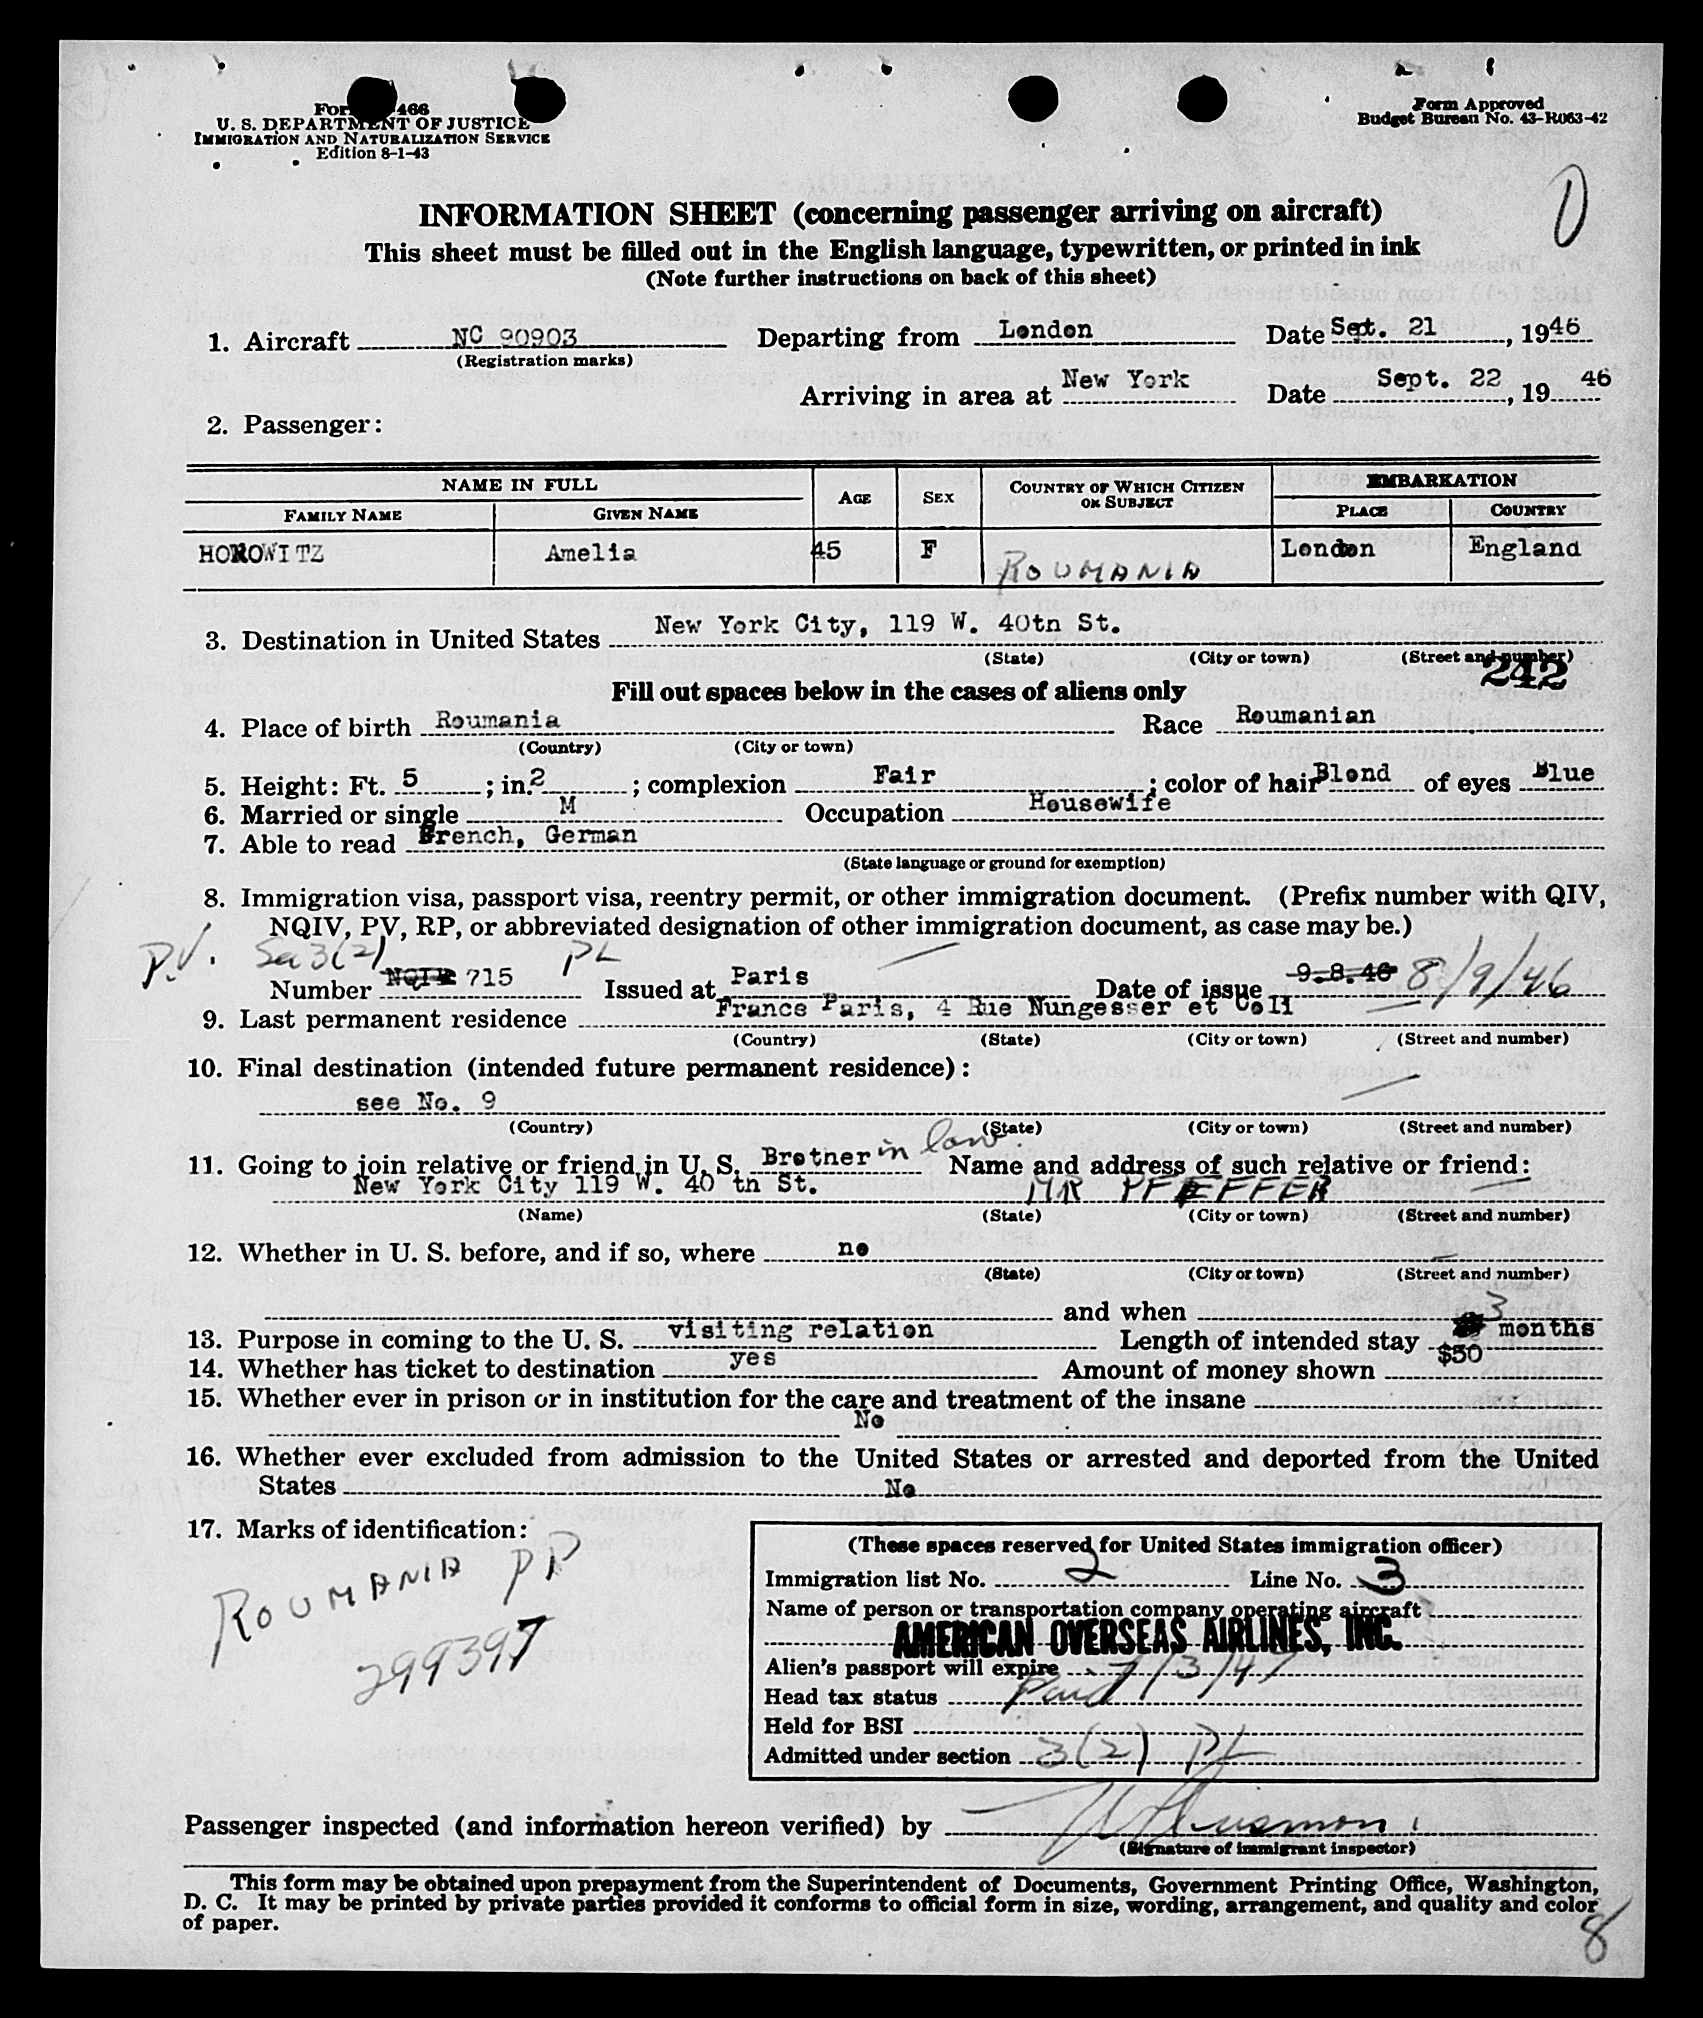 Form 466
U. S. DEPARTMENT OF JUSTICE
IMMIGRATION AND NATURALIZATION SERVICE
Edition 8-1-43
Form Approved
Budget Bureau No. 43-R063-42
INFORMATION SHEET (concerning passenger arriving on aircraft)
This sheet must be filled out in the English language, typewritten, or printed in ink
(Note further instructions on back of this sheet)
1. Aircraft NC 90903 Departing from London Date Sept. 21, 1946
(Registration marks)
Arriving in area at New York Date Sept. 22, 19 46
2. Passenger:
NAME IN FULL AGE SEX COUNTRY OF WHICH CITIZEN OR SUBJECT EMBARKATION
FAMILY NAME GIVEN NAME PLACE COUNTRY
HOROWITZ Amelia 45 F ROUMANIA London England
3. Destination in United States New York City, 119 W. 40tn St.
(State) (City or town) (Street and number)
242
Fill out spaces below in the cases of aliens only
4. Place of birth Roumania Race Roumanian
(Country) (City or town)
5. Height: Ft. 5 ; in. 2 ; complexion Fair ; color of hair Blond of eyes Blue
6. Married or single M Occupation Housewife
7. Able to read French, German
(State language or ground for exemption)
8. Immigration visa, passport visa, reentry permit, or other immigration document. (Prefix number with QIV,
NQIV, PV, RP, or abbreviated designation of other immigration document, as case may be.)
P.V. Sec 3(2) PL
Number 715 Issued at Paris Date of issue 9.8.46 8/9/46
9. Last permanent residence France Paris, 4 Rue Nungesser et Coli
(Country) (State) (City or town) (Street and number)
10. Final destination (intended future permanent residence):
see No. 9
(Country) (State) (City or town) (Street and number)
11. Going to join relative or friend in U. S. Brotner in law. Name and address of such relative or friend:
New York City 119 W. 40 tn St. MR PFEFFER
(Name) (State) (City or town) (Street and number)
12. Whether in U. S. before, and if so, where no
(State) (City or town) (Street and number)
and when
13. Purpose in coming to the U. S. visiting relation Length of intended stay 3 months
14. Whether has ticket to destination yes Amount of money shown $50
15. Whether ever in prison or in institution for the care and treatment of the insane
No
16. Whether ever excluded from admission to the United States or arrested and deported from the United
States No
17. Marks of identification:
ROUMANIA PP
299397
(These spaces reserved for United States immigration officer)
Immigration list No. 2 Line No. 3
Name of person or transportation company operating aircraft
AMERICAN OVERSEAS AIRLINES, INC.
Alien's passport will expire 7/3/47
Head tax status Paid
Held for BSI
Admitted under section 3(2) PL
Passenger inspected (and information hereon verified) by
(Signature of immigrant inspector)
This form may be obtained upon prepayment from the Superintendent of Documents, Government Printing Office, Washington,
D. C. It may be printed by private parties provided it conforms to official form in size, wording, arrangement, and quality and color
of paper.
8